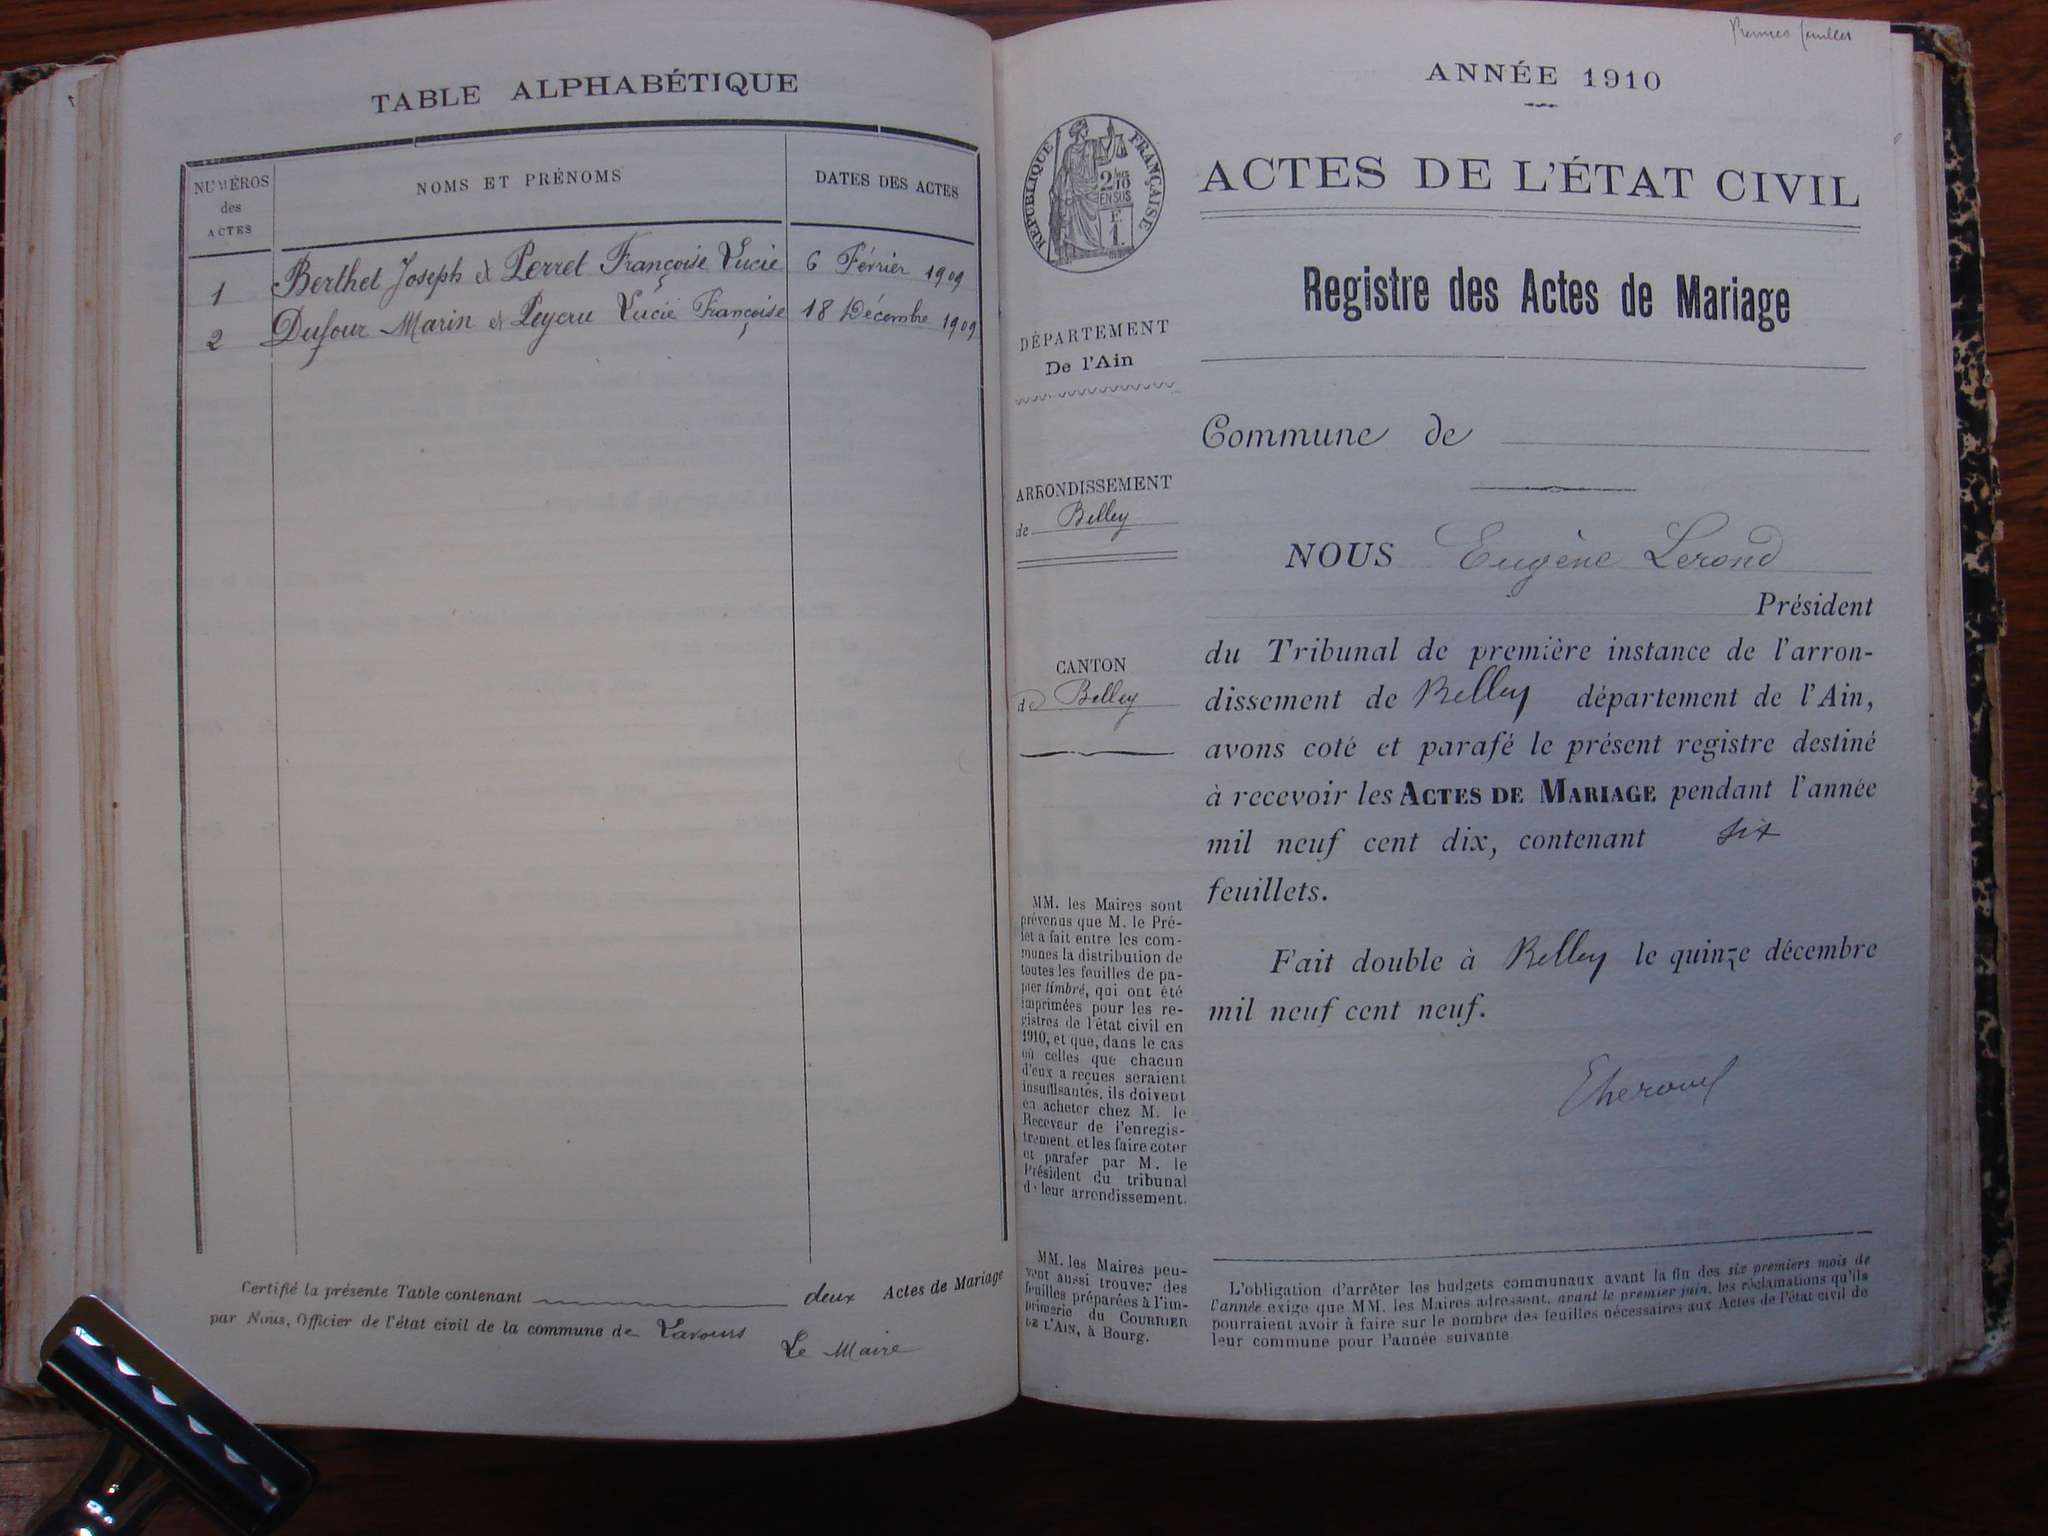 TABLE ALPHABÉTIQUE
NUMÉROS
des
ACTES
NOMS ET PRÉNOMS
DATES DES ACTES
1 Berthet Joseph & Perret Françoise Lucie 6 Février 1909
2 Dufour Marin & Peycru Lucie Françoise 18 Décembre 1909
Certifié la présente Table contenant deux Actes de Mariage
par Nous, Officier de l'état civil de la commune de Lavours
Le Maire
Premier feuillet
ANNÉE 1910
RÉPUBLIQUE FRANÇAISE
2/10
EN SUS
F.
1.
ACTES DE L'ÉTAT CIVIL
Registre des Actes de Mariage
DÉPARTEMENT
De l'Ain
ARRONDISSEMENT
de Belley
CANTON
de Belley
MM. les Maires sont
prévenus que M. le Pré-
fet a fait entre les com-
munes la distribution de
toutes les feuilles de pa-
pier timbré, qui ont été
imprimées pour les re-
gistres de l'état civil en
1910, et que, dans le cas
où celles que chacun
d'eux a reçues seraient
insuffisantes, ils doivent
en acheter chez M. le
Receveur de l'enregis-
trement et les faire coter
et parafer par M. le
Président du tribunal
de leur arrondissement.
MM. les Maires peu-
vent aussi trouver des
feuilles préparées à l'im-
primerie du COURRIER
DE L'AIN, à Bourg.
Commune de
NOUS Eugène Lerond
Président
du Tribunal de première instance de l'arron-
dissement de Belley département de l'Ain,
avons coté et parafé le présent registre destiné
à recevoir les ACTES DE MARIAGE pendant l'année
mil neuf cent dix, contenant six
feuillets.
Fait double à Belley le quinze décembre
mil neuf cent neuf.
L'obligation d'arrêter les budgets communaux avant la fin des six premiers mois de
l'année exige que MM. les Maires adressent, avant le premier juin, les réclamations qu'ils
pourraient avoir à faire sur le nombre des feuilles nécessaires aux Actes de l'état civil de
leur commune pour l'année suivante